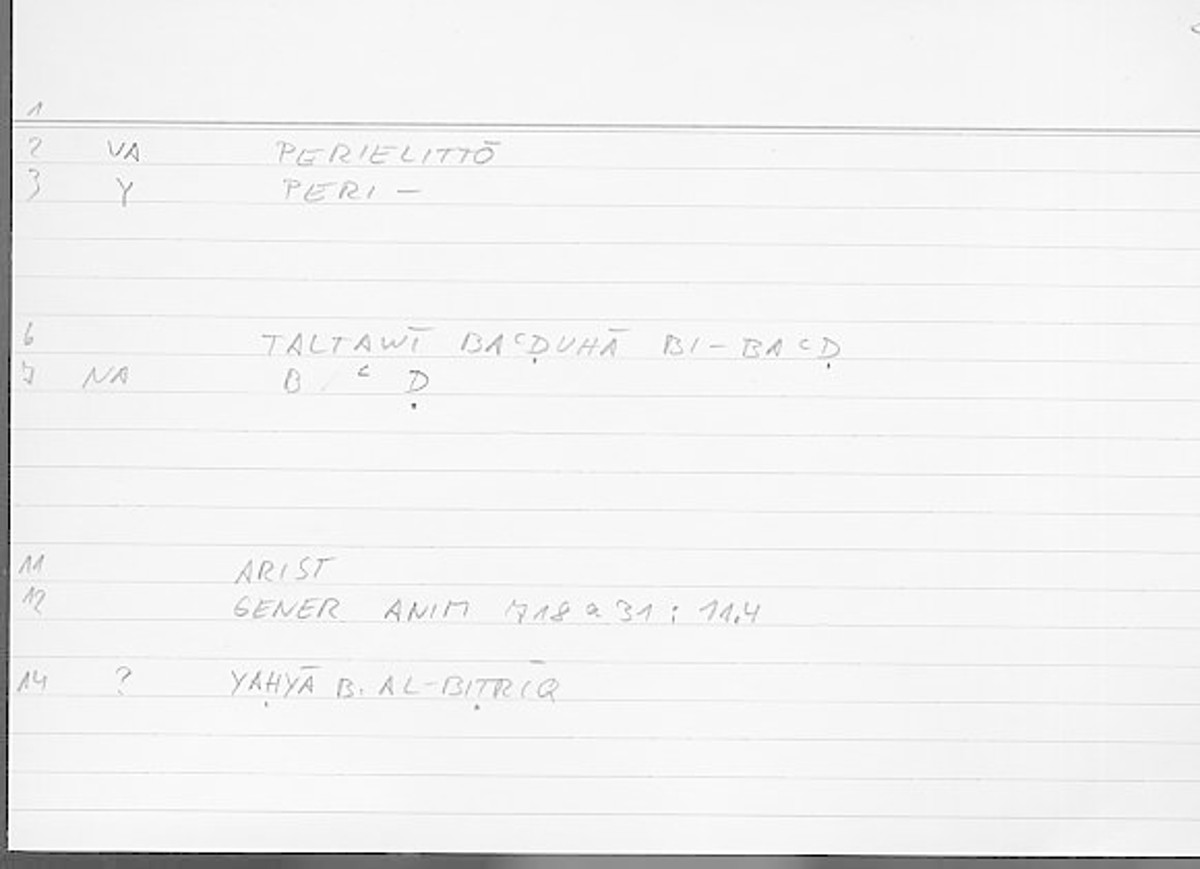 1
2 VA PERIELITTŌ
3 Y PERI –
6 TALTAWĪ BAʿḌUHĀ BI-BAʿḌ
7 NA B / ʿ Ḍ
11 ARIST
12 GENER ANIM 718 a 31 : 11,4
14 ? YAḤYĀ B. AL-BIṬRĪQ